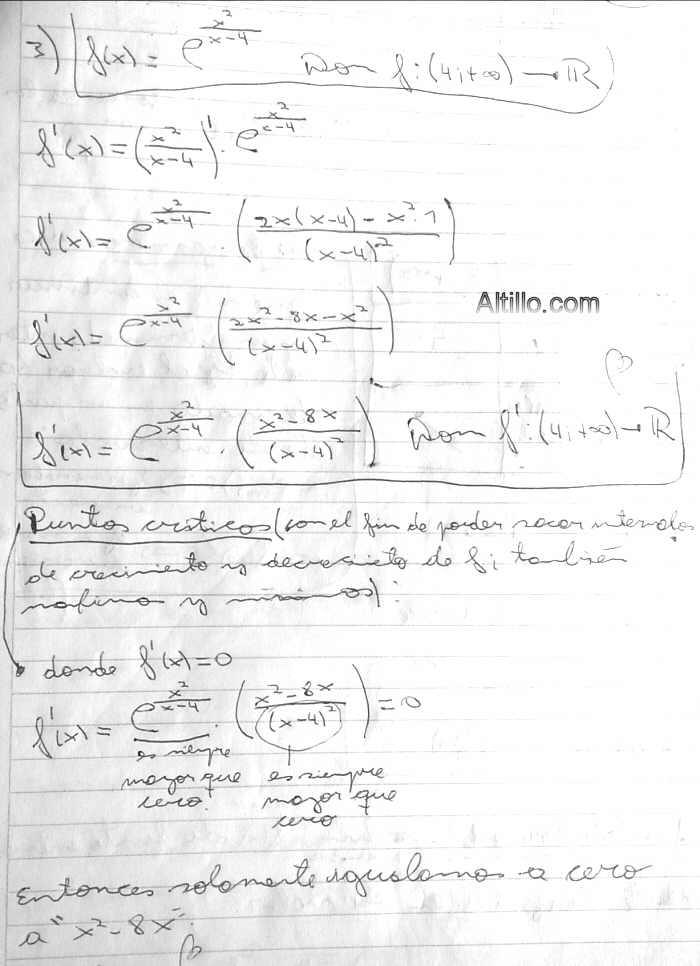 3) f(x) = e^(x²/(x-4)) Dom f: (4;+∞) → ℝ
f'(x) = (x²/(x-4))' · e^(x²/(x-4))
f'(x) = e^(x²/(x-4)) · ((2x(x-4) - x²·1)/(x-4)²)
Altillo.com
f'(x) = e^(x²/(x-4)) · ((2x²-8x-x²)/(x-4)²)
f'(x) = e^(x²/(x-4)) · ((x²-8x)/(x-4)²) Dom f': (4;+∞) → ℝ
Puntos criticos (con el fin de poder sacar intervalos
de crecimiento y de f; también
y minimos):
• donde f'(x) = 0
f'(x) = e^(x²/(x-4)) · ((x²-8x)/(x-4)²) = 0
es siempre
mayor que es siempre
cero. mayor que
cero
Entonces solamente igualamos a cero
a "x²-8x".